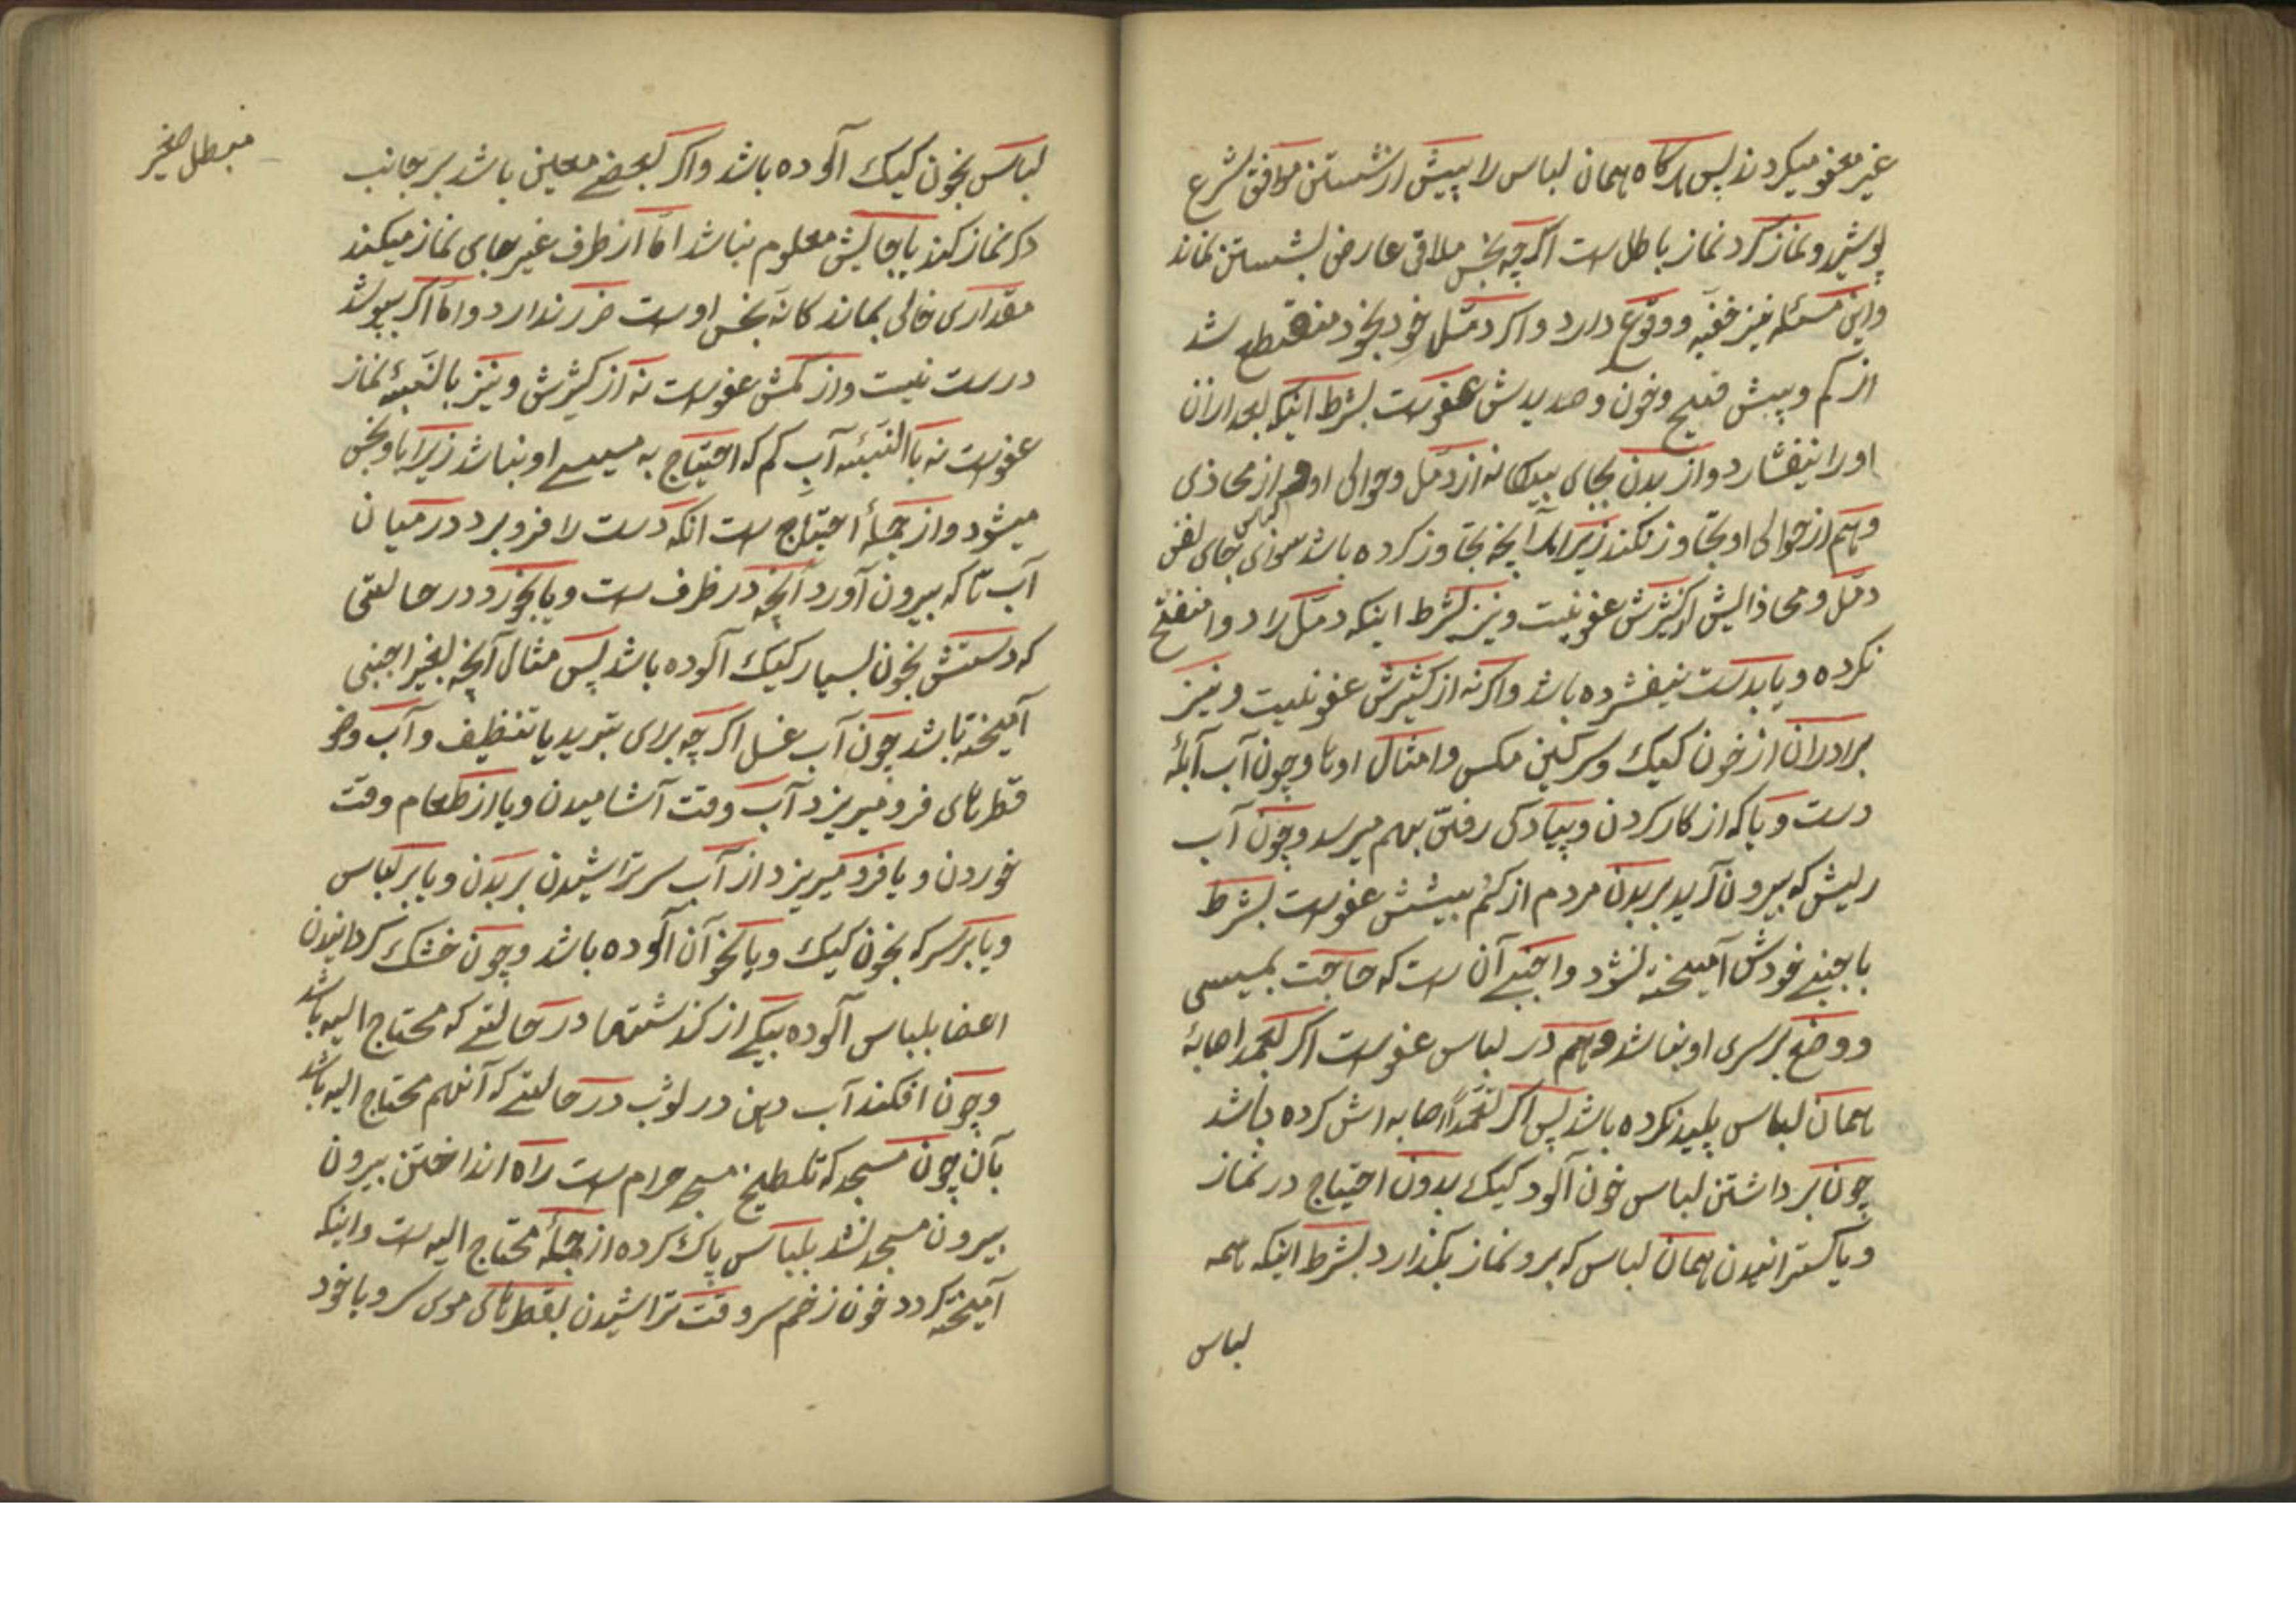 غیر معفو میکردند پس هرکاه همان لباس را پیش از شستن موافق شرع
پوشید و نماز کرد نماز باطل است اکرچه نجس ملاقی عارض بشستن نماند
واین مسئله نیز خفیه ووقوع دارد واکر دمّل خود بخود منقطع شد
از کم وبیش قیح وخون وصدیدش عفو است بشرط اینکه بعد از آن
اورا نیفشارد واز بدن بجای بیکانه از دمّل وحوالی او وهم از محاذی
وهم از حوالی او تجاوز نکند زیرا هر آنچه تجاوز کرده باشد سوزی جای
دمّل ومحاذایش از کثیرش عفو نیست ونیز بشرط اینکه دمّل را دوا منفتح
نکرده ویا بدست نیفشرده باشد واکرنه از کثیرش عفو نیست ونیز
برادران از خون کیک وسرکین مکس وامثال اوها وچون آب آبلهٔ
دست وپا که از کار کردن وپیادکی رفتن بهم میرسد وچون آب
ریش که بیرون آید بر بدن مردم از کم بیشش عفو است بشرط
باجنبی خودش آمیخته نشود واجنبی آن است که حاجت بمیسی
ووضع بر سری او نباشد وهم در لباس عفو است اکر بعمد اصابهٔ
همان لباس پلید نکرده باشد پس اکر تعمّداً اصابه اش کرده باشد
چون برداشتن لباس خون آلود کیک بدون احتیاج در نماز
ویا کسترانیدن همان لباس که برو نماز بکذارد بشرط اینکه همه
لباس
لباس بخون کیک آلوده باشد واکر بعضی معین باشد بر جانب
دکر نماز کند یا جایش معلوم نباشد امّا از طرف غیر جای نماز میکند
مقداری خالی بماند کانه نجس اوست ضرر ندارد وامّا اکر بپوشد
درست نیست واز کمش عفو است نه از کثیرش ونیز بالنّسبهٔ نماز
عفو است نه باالنّسبه آب کم که احتیاج به میسی او نباشد زیرا باو نجس
میشود واز جملهٔ احتیاج است آنکه دست را فرو برد در میان
آب تا که بیرون آورد آنچه در ظرف است ویا بخورد در حالتی
که دستش بخون بسیار کیک آلوده باشد پس مثال آنچه بغیر اجنبی
آمیخته باشد چون آب غسل اکرچه برای تبرید یا تنظیف وآب وضو
قطرهای فرو میریزد آب وقت آشامیدن ویا از طعام وقت
خوردن ویا فرو میریزد از آب سر تراشیدن بر بدن ویا بر لباس
ویا بر سر که بخون کیک ویا نحو آن آلوده باشد وچون خشک کردانیدن
اعضا بلباس آلوده بیکی از کذشتها در حالتی که محتاج الیه باشد
وچون افکند آب دهن در ثوب در حالتی که آنهم محتاج الیه باشد
بآن چون مسجد که تلطیخ مسجد حرام است راه انداختن بیرون
بیرون مسجد نشد بلباس پاک کرده از جملهٔ محتاج الیه است واینکه
آمیخته کردد خون زخم سر وقت تراشیدن بقطرهای موی سر ویا خود